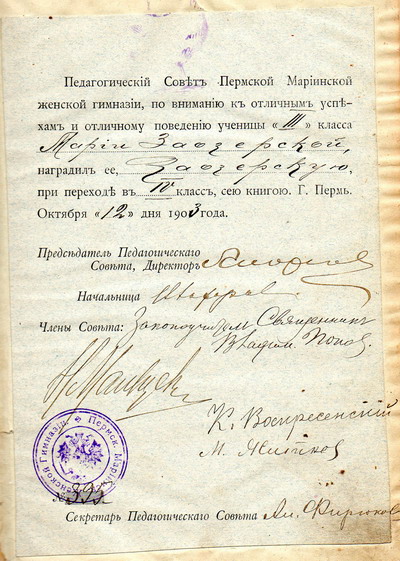 Педагогическій Совѣтъ Пермской Маріинской
женской гимназіи, по вниманію къ отличнымъ успѣ-
хамъ и отличному поведенію ученицы «III» класса
Маріи Заозерской,
наградилъ ее, Заозерскую,
при переходѣ въ IV классъ, сею книгою. Г. Пермь.
Октября «12» дня 1903 года.
Предсѣдатель Педагогическаго
Совѣта, Директоръ
Начальница
Члены Совѣта: Законоучитель Священник
Попов.
К. Воскресенскій
М.
Пермск. Марі
енской Гимназіи.
№ 395
Секретарь Педагогическаго Совѣта Ал.